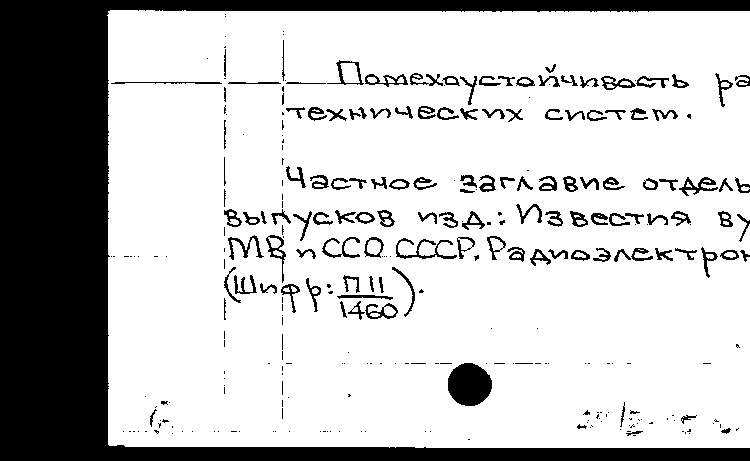 Помехоустойчивость ра
технических систем.
Частное заглавие отдель
выпусков изд.: Известия ву
МВ и ССО СССР. Радиоэлектрон
(Шифр: П 11
1460).